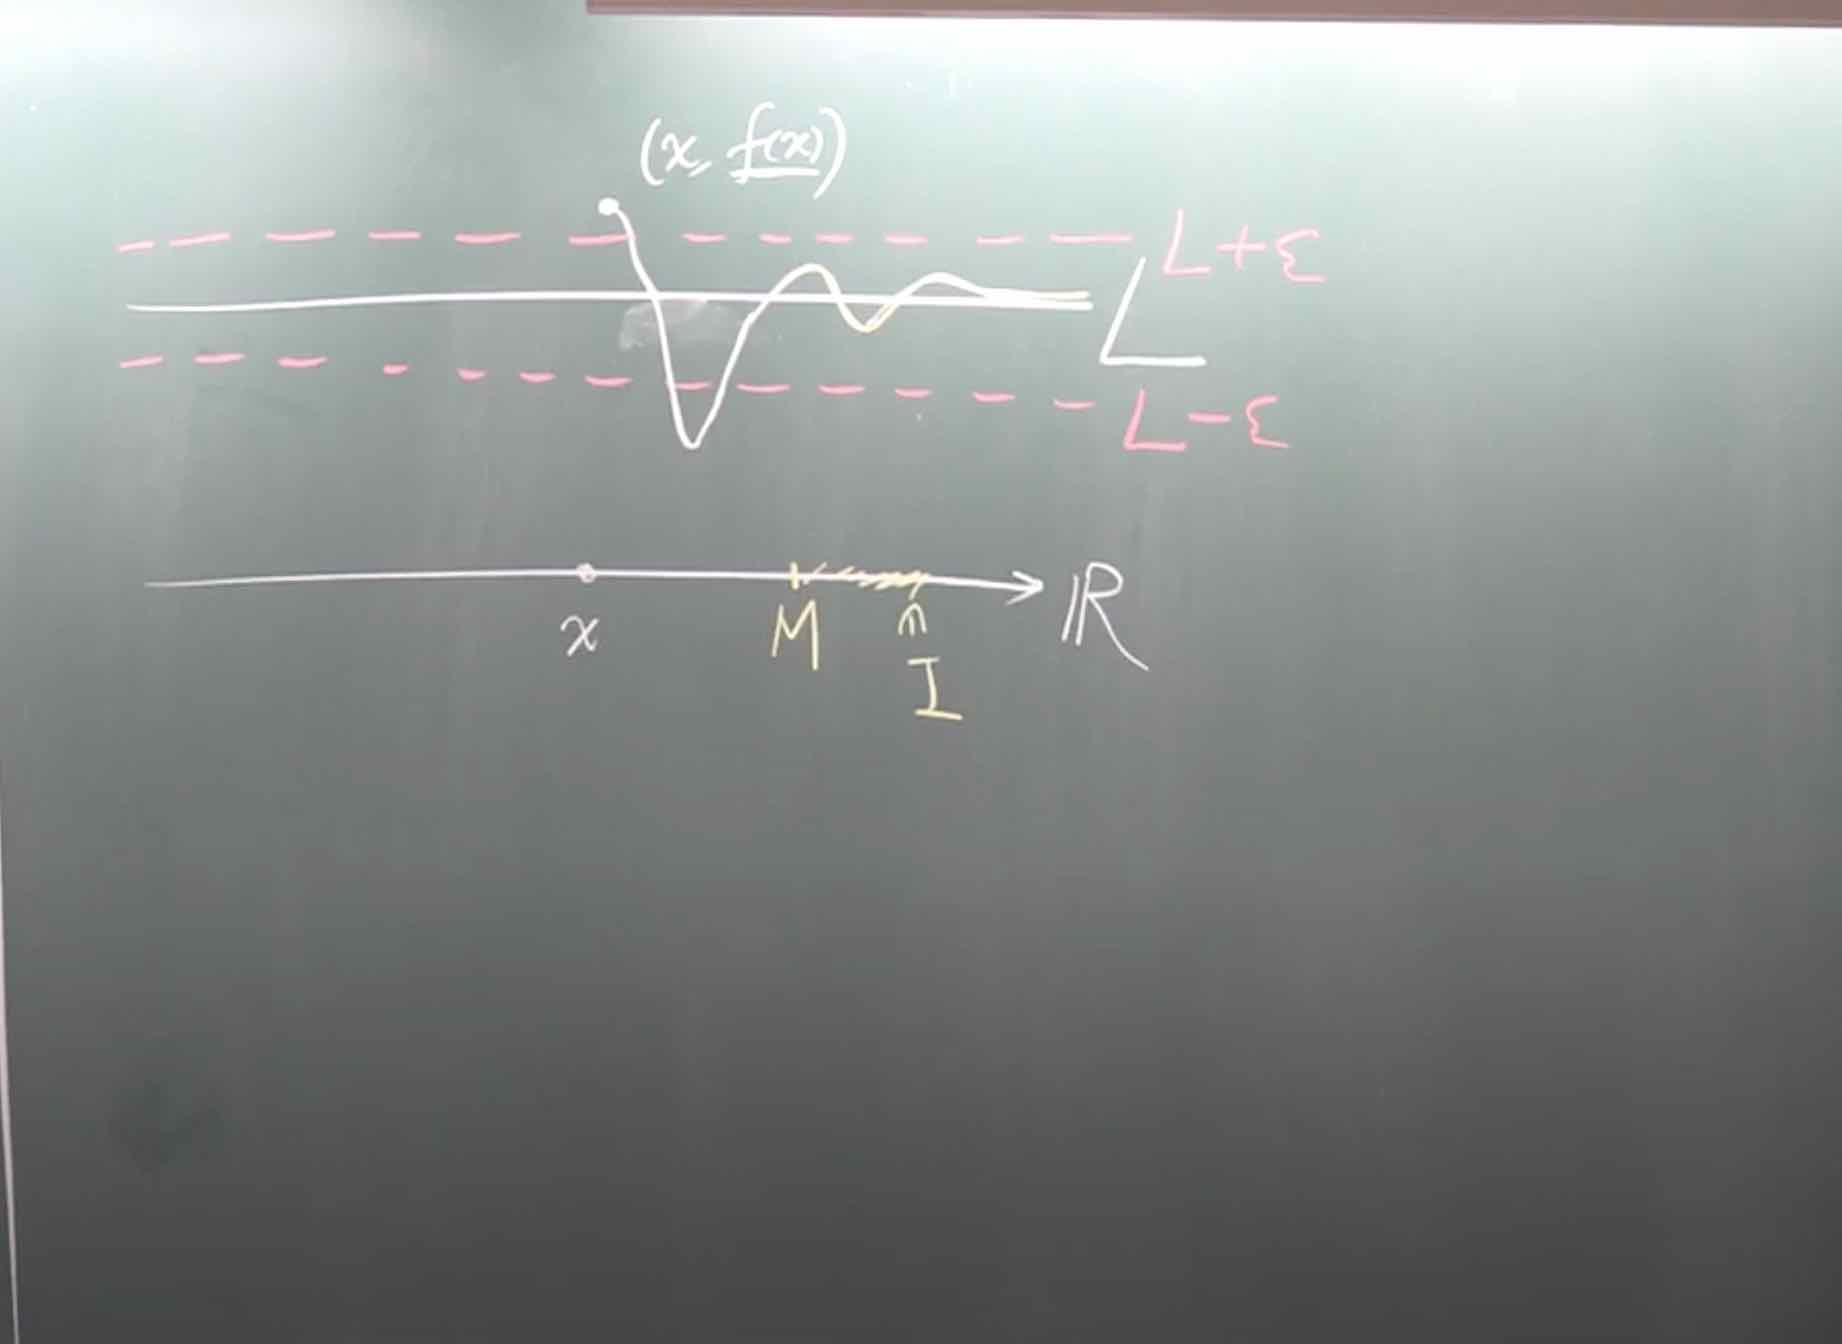 (x, f(x))
L+ε
L
L-ε
x M ∩ ℝ
I